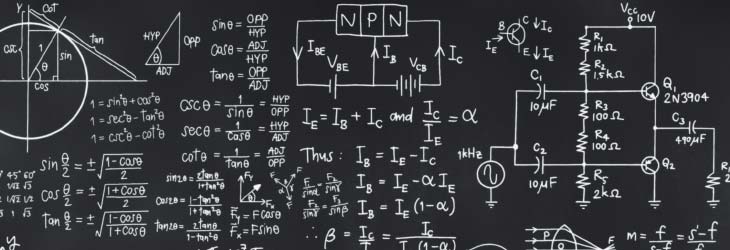 Y
cot
csc
1
sin
tan
θ
cos
HYP
OPP
θ
ADJ
sinθ = OPP/HYP
cosθ = ADJ/HYP
tanθ = OPP/ADJ
1 = sin²θ + cos²θ
1 = sec²θ - tan²θ
1 = csc²θ - cot²θ
cscθ = 1/sinθ = HYP/OPP
secθ = 1/cosθ = HYP/ADJ
cotθ = 1/tanθ = ADJ/OPP
45° 60°
sin θ/2 = ±√(1-cosθ/2)
cos θ/2 = ±√(1+cosθ/2)
tan θ/2 = ±√(1-cosθ/1+cosθ)
sin2θ = 2tanθ/1+tan²θ
cos2θ = 1-tan²θ/1+tan²θ
tan2θ = 2tanθ/1-tan²θ
Fx = Fcosθ
Fx = Fsinθ
N P N
I_BE
I_B
I_C
V_BE
V_CB
I_E = I_B + I_C and I_C/I_E = α
Thus : I_B = I_E - I_C
I_B = I_E - αI_E
I_B = I_E (1-α)
∴ β =
B
C
I_C
I_E
E
I_E
Vcc 10V
R₁
1kΩ
R₂
1.5kΩ
C₁
10μF
R₃
100Ω
R₄
100Ω
C₂
10μF
R₅
2kΩ
Q₁
2N3904
Q₂
C₃
470μF
1kHz
P
m = f/f-s = s'-f/f